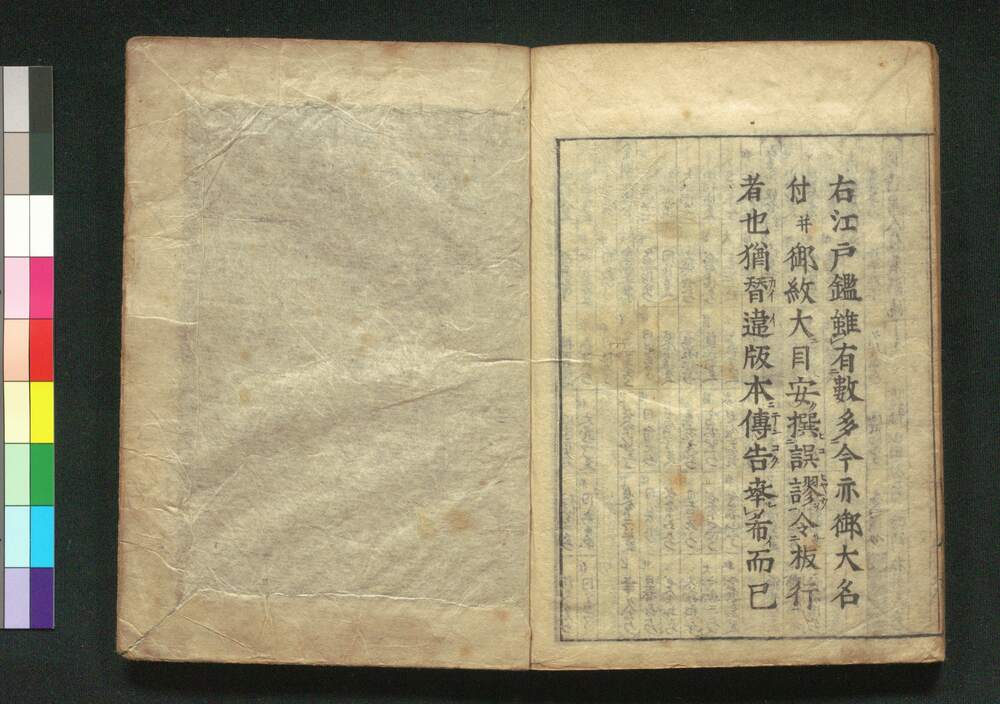 右江戸鑑雖有數多今亦御大名
付并御紋大目安撰誤謬令板行
者也猶替違版本傳告幸希而已